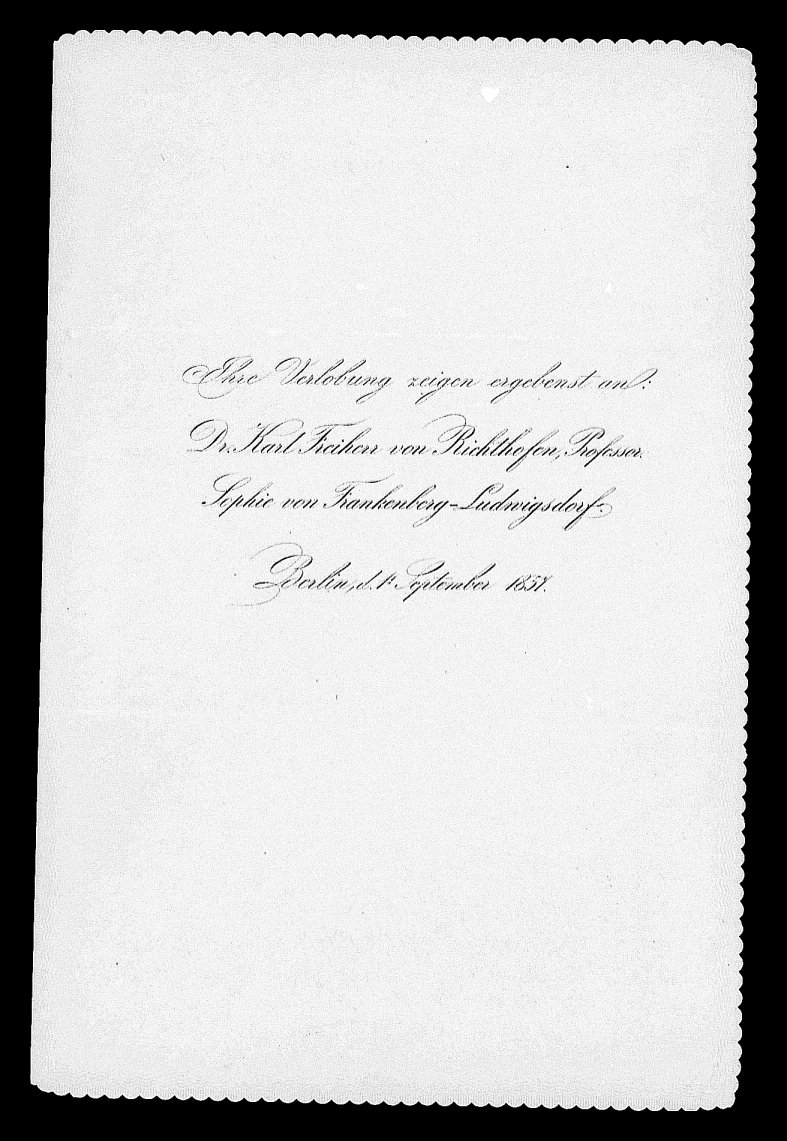 Ihre Verlobung zeigen ergebenst an:
Dr. Karl Freiherr von Richthofen, Professor.
Sophie von Frankenberg-Ludwigsdorf.
Berlin, d. 1t September 1857.